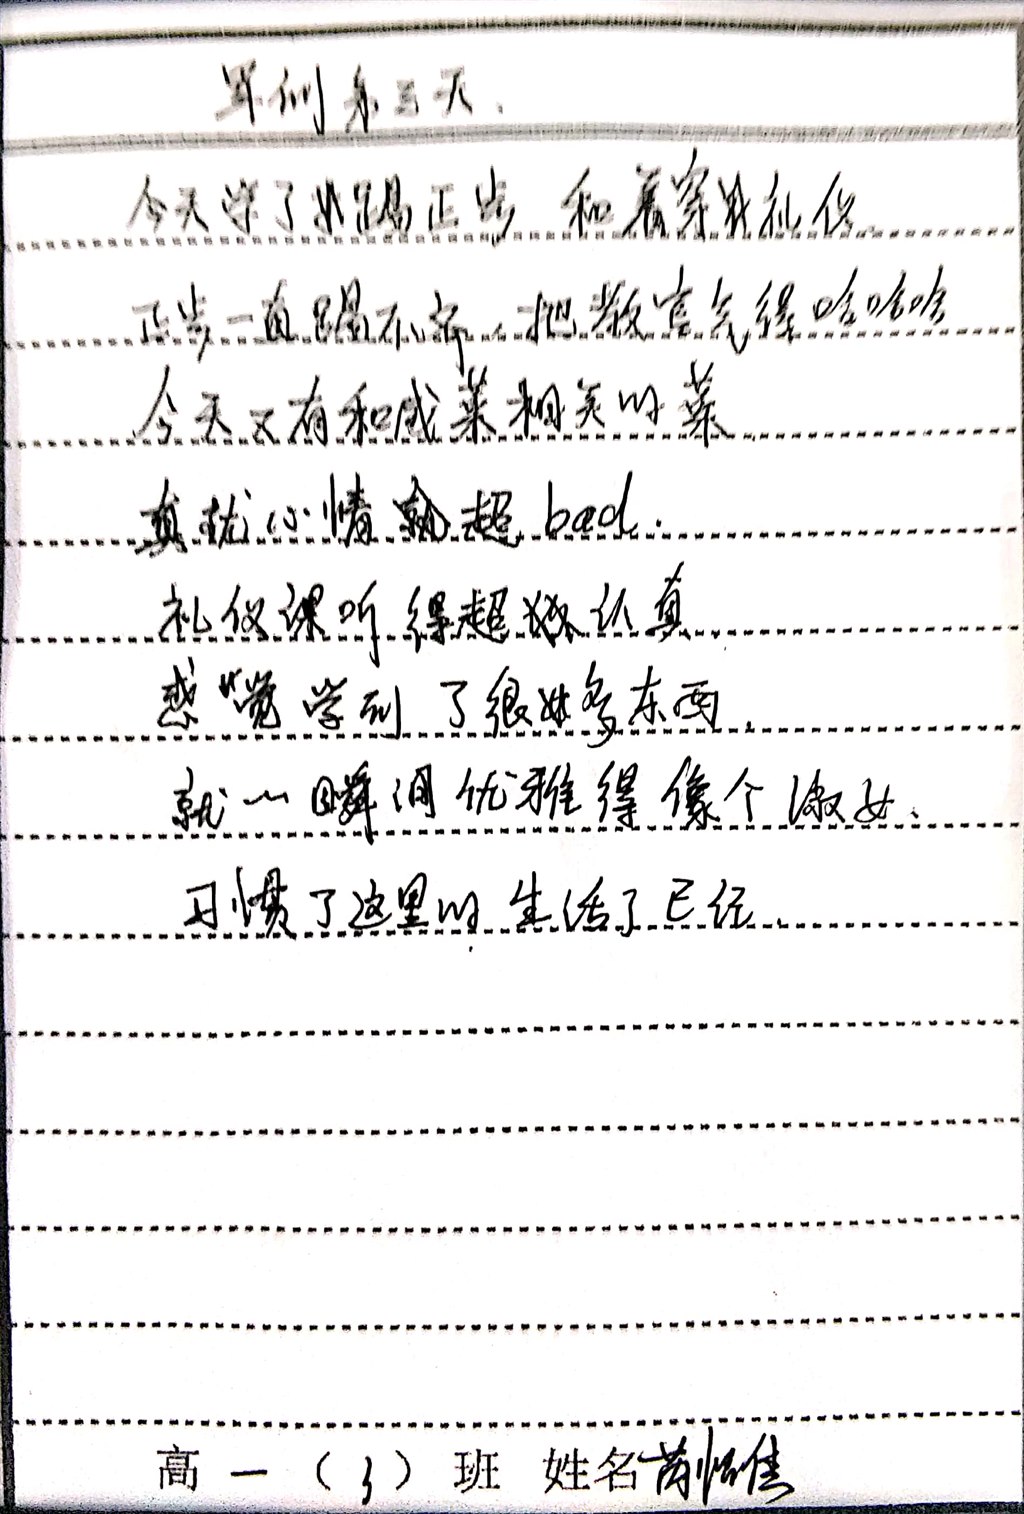 军训第三天.
今天学了踢正步 和着穿戴礼仪.
正步一直踢不齐,把教官气得哈哈哈
今天又有和咸菜相关的菜
真扰心情就超bad.
礼仪课听得超级认真
感觉学到了很好多东西.
就一瞬间优雅得像个淑女.
习惯了这里的生活了已经.
高一(3)班 姓名